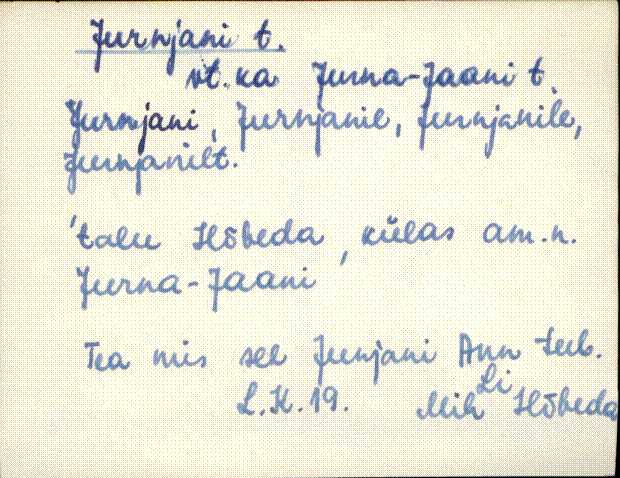 Jurnjani t.
vt. ka Jurna-Jaani t.
Jurnjani, Jurnjanil, Jurnjanile,
Jurnjanilt.
'talu Hõbeda, külas am.n.
Jurna-Jaani
Tea mis see Junjani Ann tul.
L.K. 19. Mih Li Hõbeda